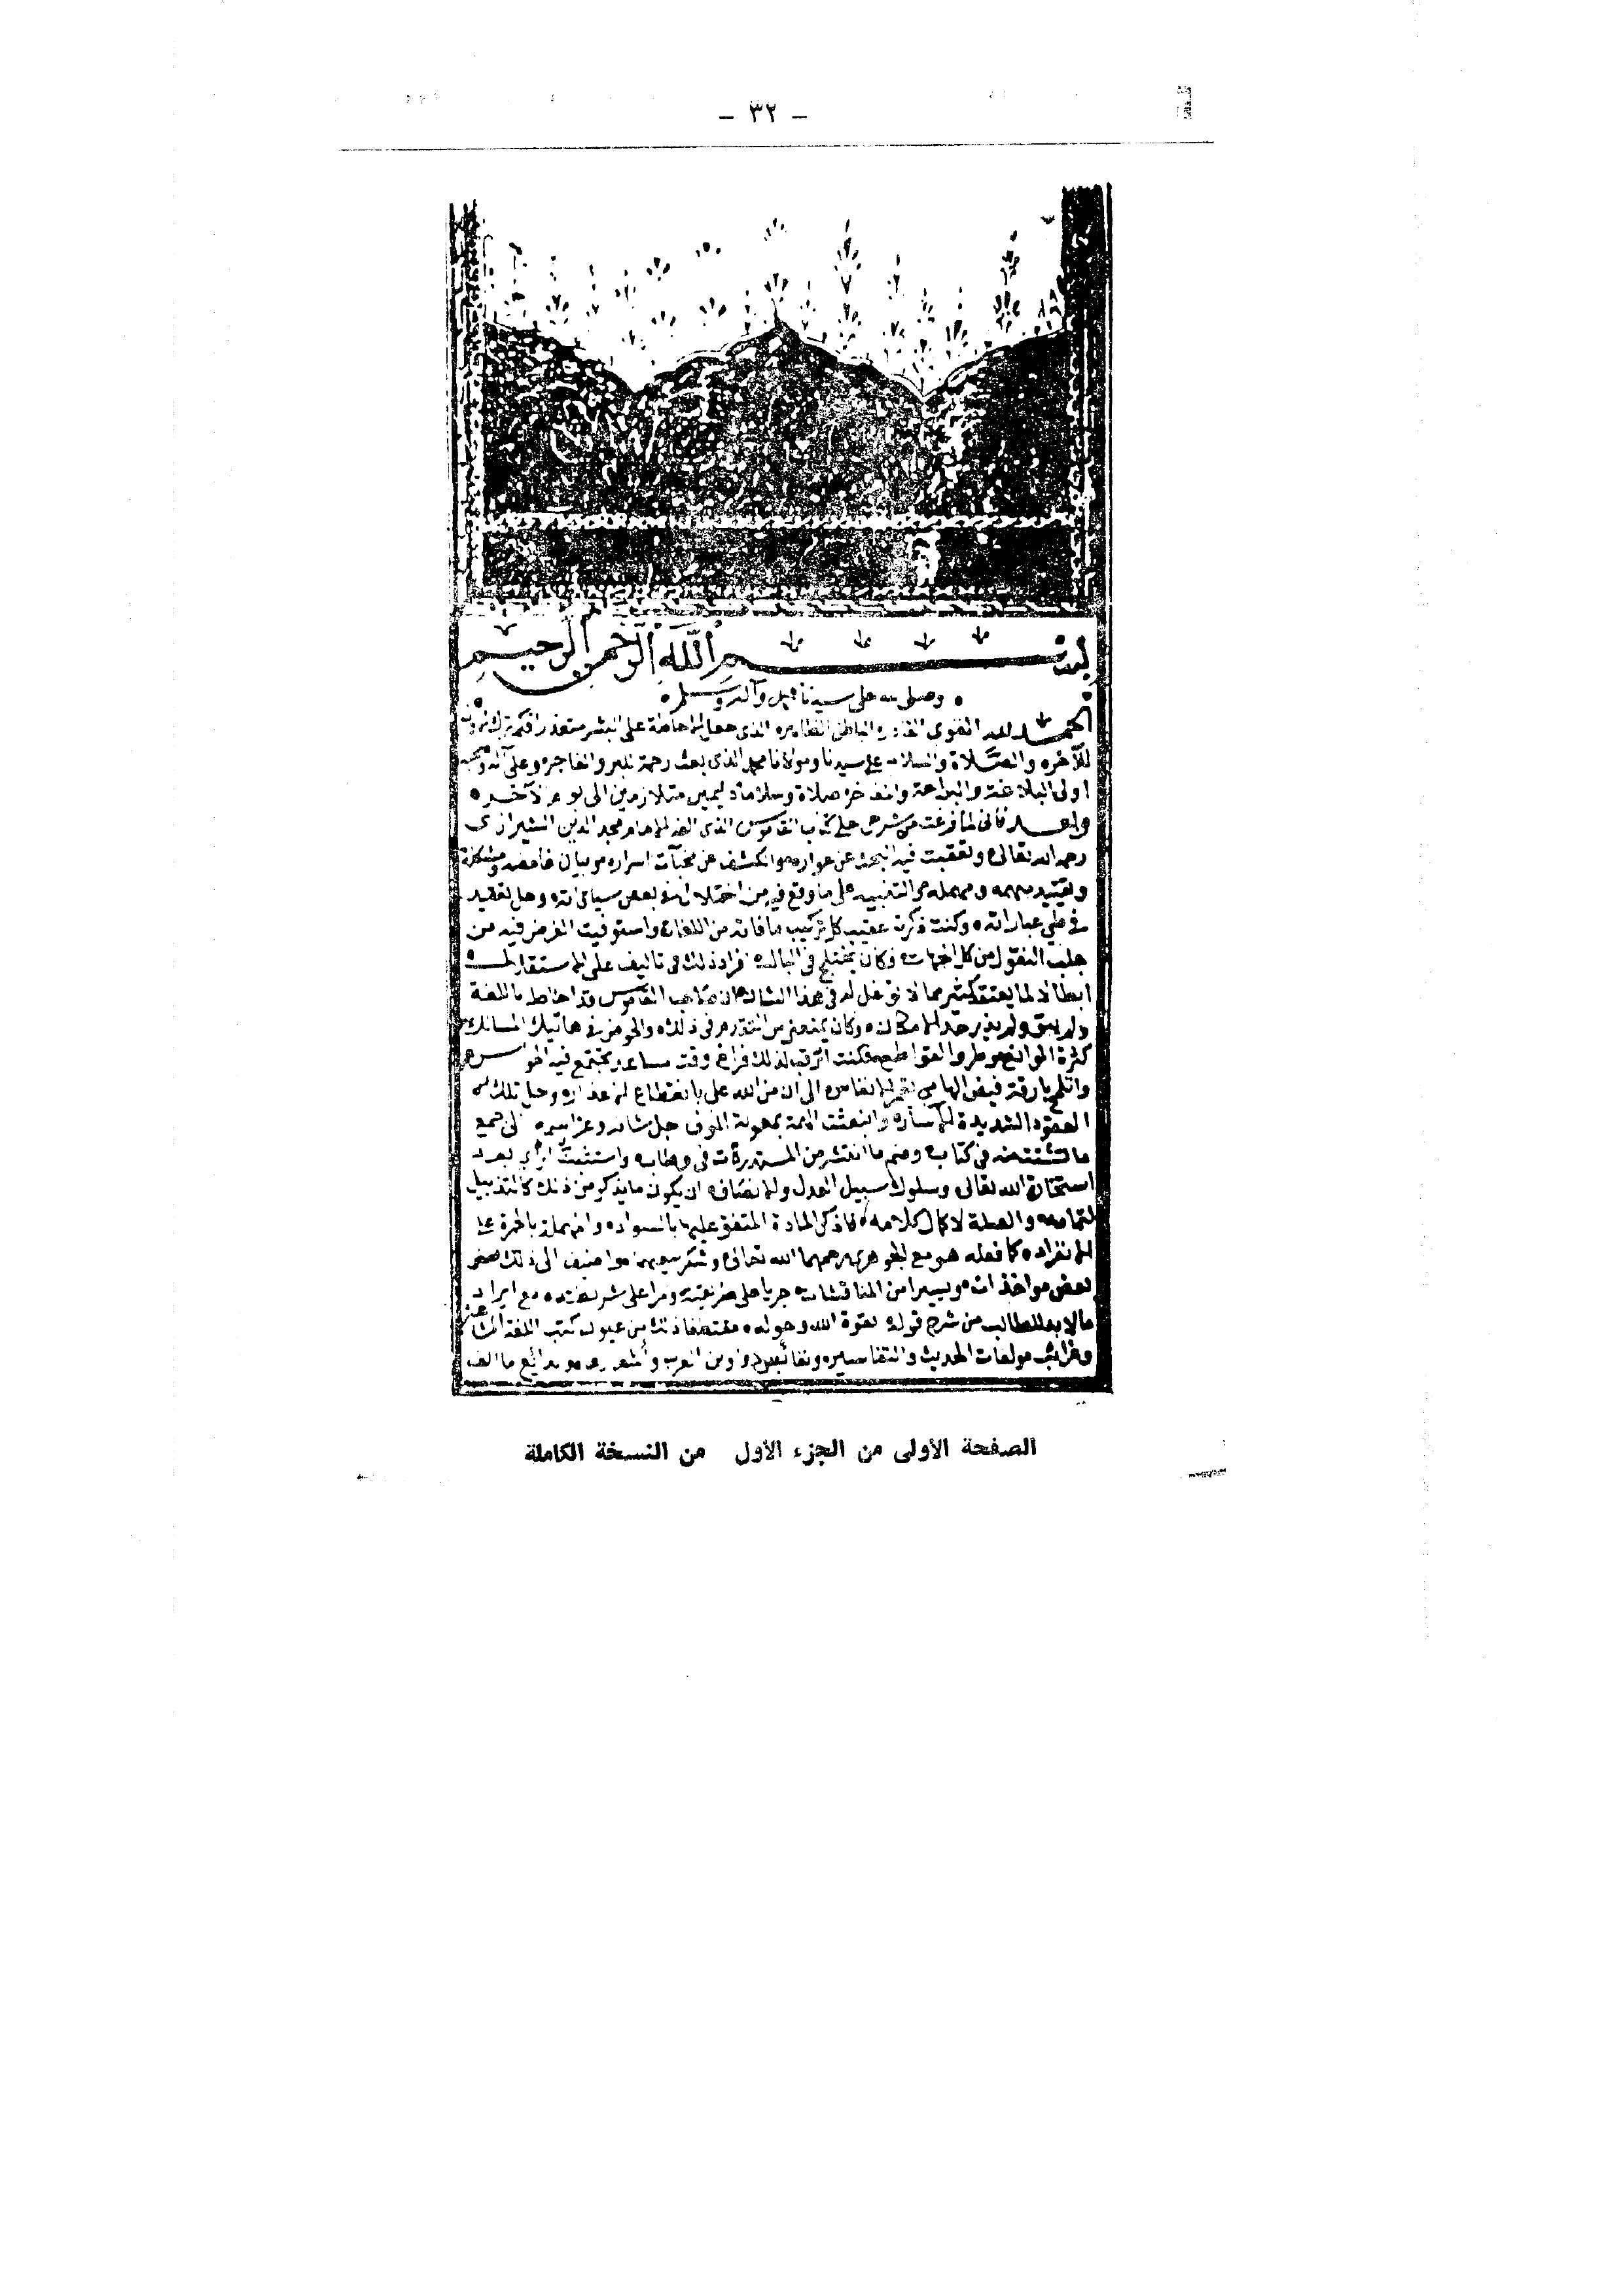 - ٣٢ -
بسم الله الرحمن الرحيم
وصلى الله على سيدنا محمد وآله وسلم
الحمد لله القوى القادر الباطن الظاهر الذى جعل الاحاطة على البشر متعذرا فكم ترك الاول
للآخره والصلاة والسلام على سيدنا ومولانا محمد الذى بعث رحمة للبر والفاجره وعلى آله وصحبه
اولى البلاغة والبراعة والمفاخر صلاة وسلاما دايمين متلازمين الى يوم الآخره
وبعد فانى لما فرغت من شرحى على كتاب القاموس الذى الفه الامام مجد الدين الشيرازى
رحمه الله تعالى وتعقبت فيه البحث عن عواره والكشف عن مخبآت اسراره وبيان غامضه ومشكله
وتقييد مهمه ومهمله والتنبيه على ما وقع فيه من اختلال فى بعض سياقاته وحل تعقيد
فى طي عباراته وكنت ذكرت عقيب كل تركيب ما فاته من اللغات واستوفيت الغرض فيه من
جلب النقول من كل الجهات وكان يختلج فى البال افراد ذلك فى تاليف على الاستقلال
ابطالا لما يعتقد كثير ممالا توغل له فى هذا الشان ان صاحب القاموس قد احاط باللغة
ولم يبق ولم يذر حد الامكان وكان يمنعنى من التقدم فى ذلك والخوض فى هاتيك المسالك
كثرة الموانع والقواطع فكنت اترقب لذلك فراغ وقت مساعد يجتمع فيه الحواس
بارقة فيض الهامي الى ان من الله على بانقطاع وحل تلك
العقود الشديدة وانبعثت الهمة بمعونة المولى جل شانه وعز اسمه الى جمع
ما تشتت منه فى كتاب وضم ما انتشر من المستدركات فى وطاب واستثبت الرأى بعد
استخارة الله تعالى وسلوك سبيل العدل والانصاف ان يكون ما يذكر من ذلك كالتذييل
لتمامه والصلة لاكمال كلامه فاذكر المادة المتفق عليها بالسواد والمهملة بالحمرة على
الانفراد كما فعله هو مع الجوهرى رحمهما الله تعالى وشكر سعيهما واضيف الى ذلك
بعض مواخذات ويسيرا من المناقشات جريا على طريقته ومرا على شريعته مع ايراد
ما لا بد للطالب من شرح قوله بقوة الله وحوله مقتطفا ذلك من عيون كتب اللغة
وغرائب مولفات الحديث والتفاسير دواوين العرب وبدائع ما الف
الصفحة الأولى من الجزء الأول من النسخة الكاملة